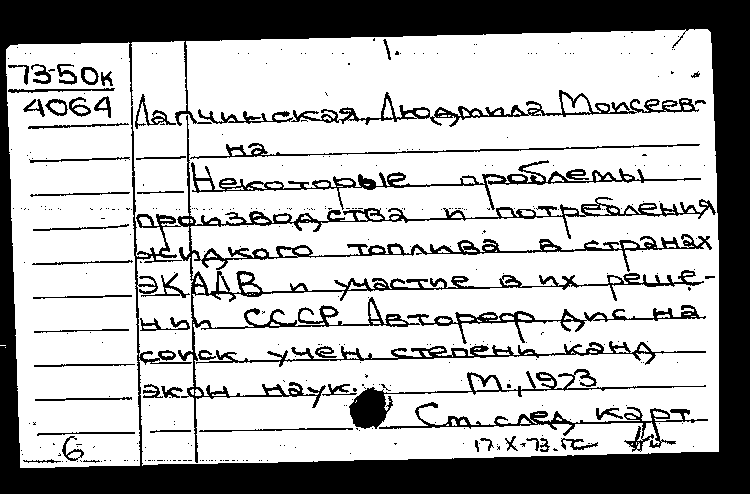 1.
73-50к
4064
Лапчинская, Людмила Моисеев-
на.
Некоторые проблемы
производства и потребления
жидкого топлива в странах
ЭКАДВ и участие в их реше-
нии СССР. Автореф дис. на
соиск. учен. степени канд
экон. наук. М., 1973.
См. след. карт.
6
17.X-73.